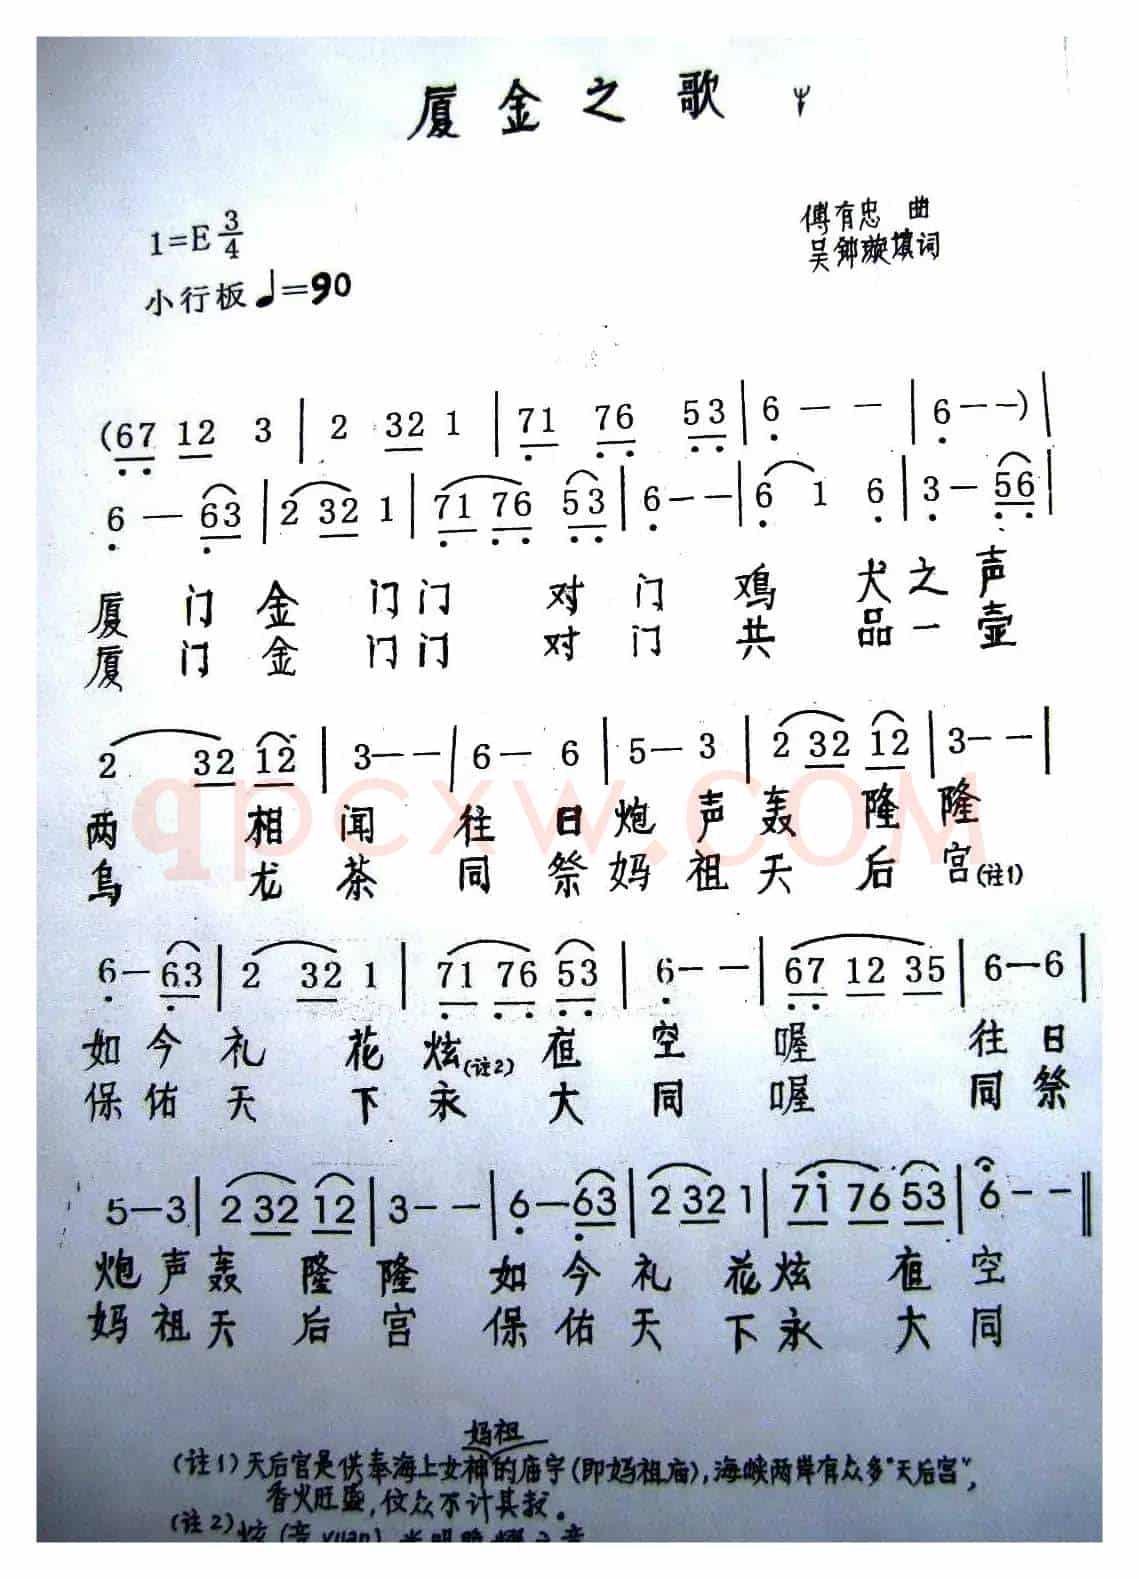 厦金之歌
1=E 3/4
傅有忠 曲
吴 璇填词
小行板 ♩=90
(67 12 3 | 2 32 1 | 71 76 53 | 6 - - | 6 - -) |
6 - 63 | 2 32 1 | 71 76 53 | 6 - - | 6 1 6 | 3 - 56 |
厦 门 金 门门 对 门 鸡 犬之声
厦 门 金 门门 对 门 共 品一壶
2 32 12 | 3 - - | 6 - 6 | 5 - 3 | 2 32 12 | 3 - - |
两 相 闻 往 日炮 声 轰 隆 隆
乌 龙 茶 同 祭妈 祖 天 后 宫(注1)
6 - 63 | 2 32 1 | 71 76 53 | 6 - - | 67 12 35 | 6 - 6 |
如 今 礼 花 炫(注2) 夜 空 喔 往 日
保 佑 天 下 永 大 同 喔 同 祭
5 - 3 | 2 32 12 | 3 - - | 6 - 63 | 2 32 1 | 71 76 53 | 6 - - ‖
炮 声 轰 隆 隆 如 今 礼 花 炫 夜 空
妈 祖 天 后 宫 保 佑 天 下 永 大 同
妈祖
(注1)天后宫是供奉海上女神的庙宇(即妈祖庙),海峡两岸有众多"天后宫",
香火旺盛,信众不计其数。
(注2)炫(音yuan)光明照耀之意
qpcxw.COM